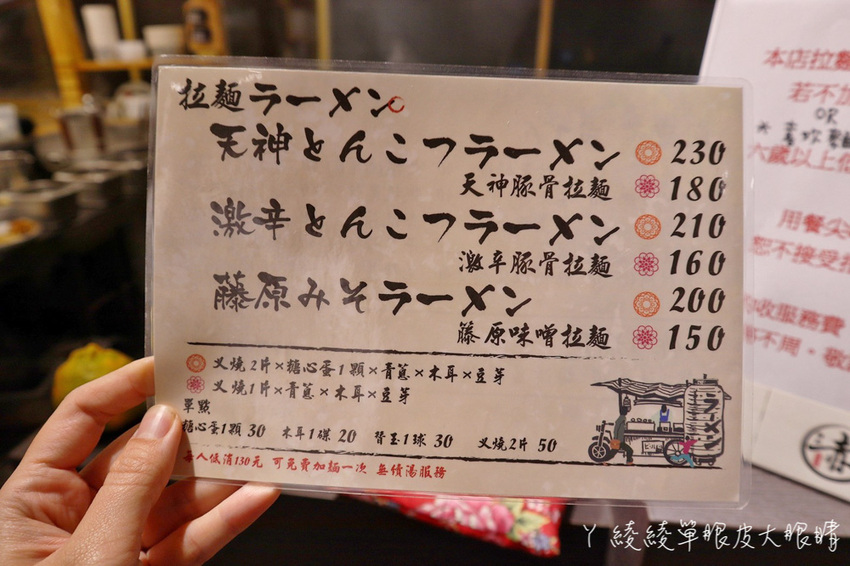 拉麵ラーメン
天神とんこつラーメン 230
天神豚骨拉麵 180
激辛とんこつラーメン 210
激辛豚骨拉麵 160
藤原みそラーメン 200
籐原味噌拉麵 150
叉燒2片×糖心蛋1顆×青蔥×木耳×豆芽
叉燒1片×青蔥×木耳×豆芽
單點
糖心蛋1顆 30 木耳1碟 20 替玉1球 30 叉燒2片 50
每人低消130元 可免費加麵一次 無續湯服務
ラーメン
本店拉麵
若不加
OR
六歲以上低
用餐尖
恕不接受
收服務費
不周，敬
丫綾綾單眼皮大眼睛